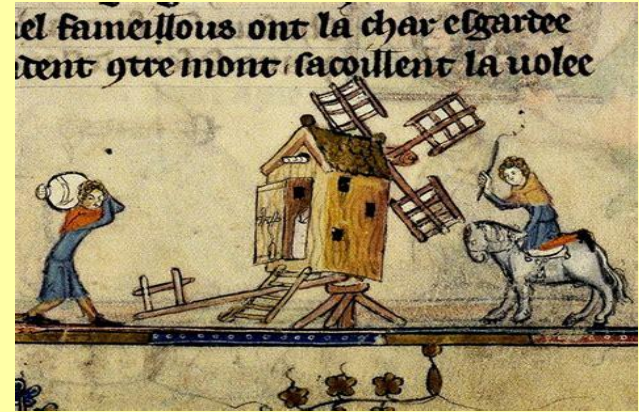 el fameillous ont la char esgartee
tent 9tre mont sacoillent la uolee